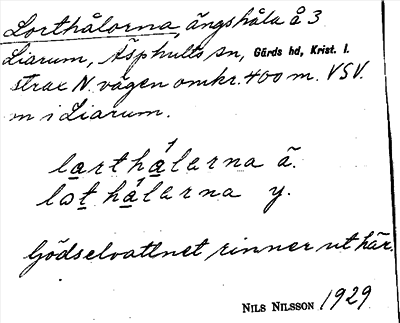 Lorthålorna, ängshåla å 3
Liarum, Äsphults sn, Gärds hd, Krist. l.
strax N. vägen omkr. 400 m. VSV.
m i Liarum.
lart hålarna ä.
lot hålarna y.
Gödselvattnet rinner ut här.
NILS NILSSON 1929